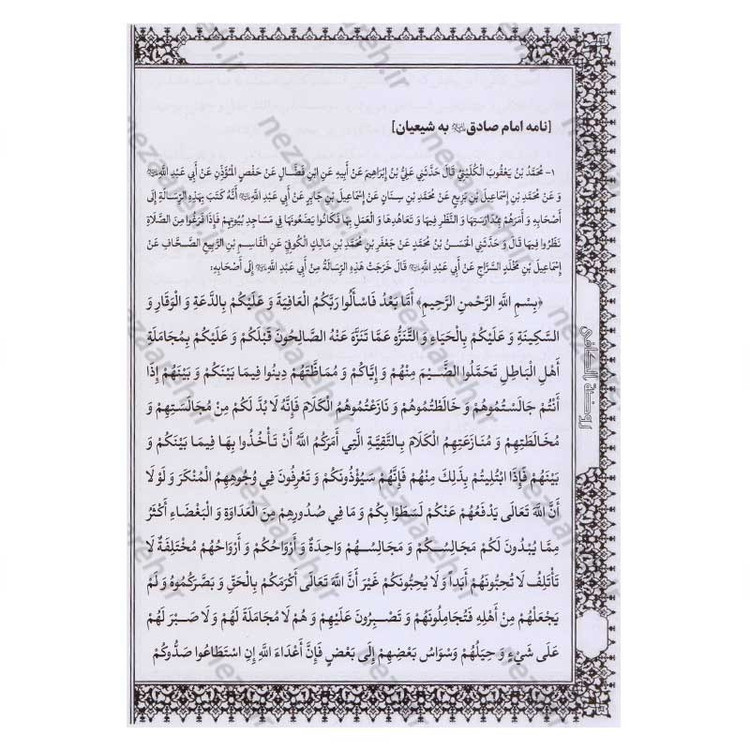 [نامه امام صادق به شیعیان]
۱- مُحَمَّدُ بْنُ يَعْقُوبَ الْكُلَيْنِيُّ قَالَ حَدَّثَنِي عَلِيُّ بْنُ إِبْرَاهِيمَ عَنْ أَبِيهِ عَنِ ابْنِ فَضَّالٍ عَنْ حَفْصٍ الْمُؤَذِّنِ عَنْ أَبِي عَبْدِ اللَّهِ
وَ عَنْ مُحَمَّدِ بْنِ إِسْمَاعِيلَ بْنِ بَزِيعٍ عَنْ مُحَمَّدِ بْنِ سِنَانٍ عَنْ إِسْمَاعِيلَ بْنِ جَابِرٍ عَنْ أَبِي عَبْدِ اللَّهِ أَنَّهُ كَتَبَ بِهَذِهِ الرِّسَالَةِ إِلَى
أَصْحَابِهِ وَ أَمَرَهُمْ بِمُدَارَسَتِهَا وَ النَّظَرِ فِيهَا وَ تَعَاهُدِهَا وَ الْعَمَلِ بِهَا فَكَانُوا يَضَعُونَهَا فِي مَسَاجِدِ بُيُوتِهِمْ فَإِذَا فَرَغُوا مِنَ الصَّلَاةِ
نَظَرُوا فِيهَا قَالَ وَ حَدَّثَنِي الْحَسَنُ بْنُ مُحَمَّدٍ عَنْ جَعْفَرِ بْنِ مُحَمَّدِ بْنِ مَالِكٍ الْكُوفِيِّ عَنِ الْقَاسِمِ بْنِ الرَّبِيعِ الصَّحَّافِ عَنْ
إِسْمَاعِيلَ بْنِ مَخْلَدٍ السَّرَّاجِ عَنْ أَبِي عَبْدِ اللَّهِ قَالَ خَرَجَتْ هَذِهِ الرِّسَالَةُ مِنْ أَبِي عَبْدِ اللَّهِ إِلَى أَصْحَابِهِ:
﴿بِسْمِ اللَّهِ الرَّحْمنِ الرَّحِيمِ﴾ أَمَّا بَعْدُ فَاسْأَلُوا رَبَّكُمُ الْعَافِيَةَ وَ عَلَيْكُمْ بِالدَّعَةِ وَ الْوَقَارِ وَ
السَّكِينَةِ وَ عَلَيْكُمْ بِالْحَيَاءِ وَ التَّنَزُّهِ عَمَّا تَنَزَّهَ عَنْهُ الصَّالِحُونَ قَبْلَكُمْ وَ عَلَيْكُمْ بِمُجَامَلَةِ
أَهْلِ الْبَاطِلِ تَحَمَّلُوا الضَّيْمَ مِنْهُمْ وَ إِيَّاكُمْ وَ مُمَاظَّتَهُمْ دِينُوا فِيمَا بَيْنَكُمْ وَ بَيْنَهُمْ إِذَا
أَنْتُمْ جَالَسْتُمُوهُمْ وَ خَالَطْتُمُوهُمْ وَ نَازَعْتُمُوهُمُ الْكَلَامَ فَإِنَّهُ لَا بُدَّ لَكُمْ مِنْ مُجَالَسَتِهِمْ وَ
مُخَالَطَتِهِمْ وَ مُنَازَعَتِهِمُ الْكَلَامَ بِالتَّقِيَّةِ الَّتِي أَمَرَكُمُ اللَّهُ أَنْ تَأْخُذُوا بِهَا فِيمَا بَيْنَكُمْ وَ
بَيْنَهُمْ فَإِذَا ابْتُلِيتُمْ بِذَلِكَ مِنْهُمْ فَإِنَّهُمْ سَيُؤْذُونَكُمْ وَ تَعْرِفُونَ فِي وُجُوهِهِمُ الْمُنْكَرَ وَ لَوْ لَا
أَنَّ اللَّهَ تَعَالَى يَدْفَعُهُمْ عَنْكُمْ لَسَطَوْا بِكُمْ وَ مَا فِي صُدُورِهِمْ مِنَ الْعَدَاوَةِ وَ الْبَغْضَاءِ أَكْثَرُ
مِمَّا يُبْدُونَ لَكُمْ مَجَالِسُكُمْ وَ مَجَالِسُهُمْ وَاحِدَةٌ وَ أَرْوَاحُكُمْ وَ أَرْوَاحُهُمْ مُخْتَلِفَةٌ لَا
تَأْتَلِفُ لَا تُحِبُّونَهُمْ أَبَداً وَ لَا يُحِبُّونَكُمْ غَيْرَ أَنَّ اللَّهَ تَعَالَى أَكْرَمَكُمْ بِالْحَقِّ وَ بَصَّرَكُمُوهُ وَ لَمْ
يَجْعَلْهُمْ مِنْ أَهْلِهِ فَتُجَامِلُونَهُمْ وَ تَصْبِرُونَ عَلَيْهِمْ وَ هُمْ لَا مُجَامَلَةَ لَهُمْ وَ لَا صَبْرَ لَهُمْ
عَلَى شَيْءٍ وَ حِيَلُهُمْ وَسْوَاسُ بَعْضِهِمْ إِلَى بَعْضٍ فَإِنَّ أَعْدَاءَ اللَّهِ إِنِ اسْتَطَاعُوا صَدُّوكُمْ
روضة الکافی
nezaareh.ir